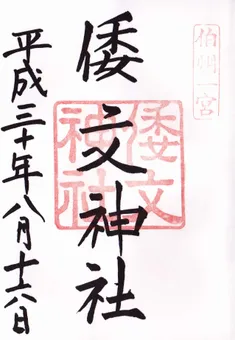 伯耆一宮
倭文神社
倭文神社
平成三十年八月十六日